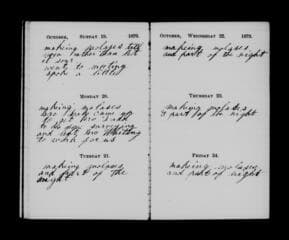 OCTOBER, SUNDAY 19. 1873.
making molases
upon rather than let
it sour
went to meeting
spoke a little
MONDAY 20.
making molases
Bro came up
to get Bro
to do some surveying
and got Bro Whiting
to work for us
TUESDAY 21.
making molases
and part of the
night
OCTOBER, WEDNESDAY 22. 1873.
making molases
and part of the night
THURSDAY 23.
making molases
& part of the night
FRIDAY 24.
making molases
and part of night